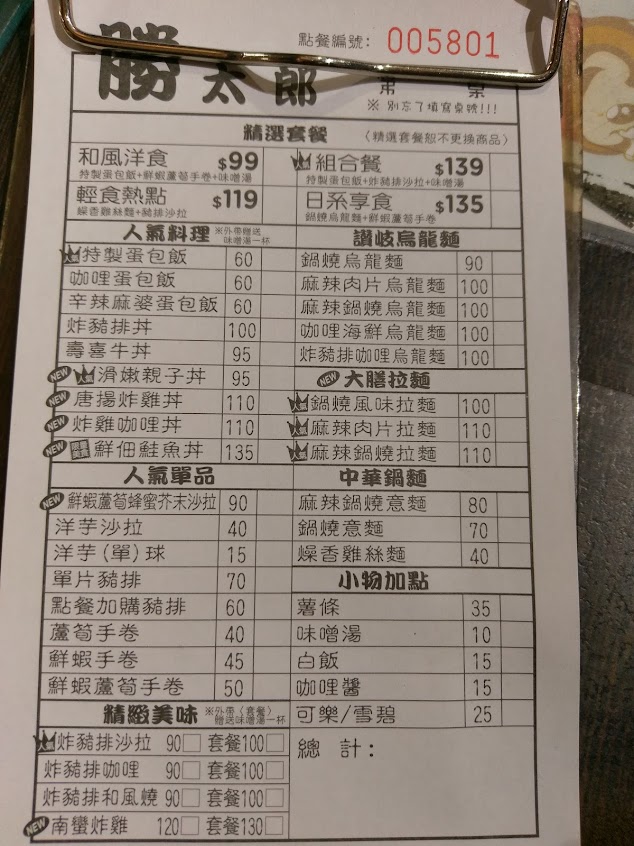 點餐編號: 005801
勝太郎
※ 別忘了填寫桌號!!!
精選套餐 (精選套餐恕不更換商品)
和風洋食 $99
特製蛋包飯+鮮蝦蘆筍手卷+味噌湯
人氣 組合餐 $139
特製蛋包飯+炸豬排沙拉+味噌湯
輕食熱點 $119
燥香雞絲麵+豬排沙拉
日系享食 $135
鍋燒烏龍麵+鮮蝦蘆筍手卷
人氣料理 ※外帶贈送味噌湯一杯
人氣 特製蛋包飯 60
咖哩蛋包飯 60
辛辣麻婆蛋包飯 60
炸豬排丼 100
壽喜牛丼 95
NEW 人氣 滑嫩親子丼 95
NEW 唐揚炸雞丼 110
NEW 炸雞咖哩丼 110
NEW 鮮佃鮭魚丼 135
人氣單品
NEW 鮮蝦蘆筍蜂蜜芥末沙拉 90
洋芋沙拉 40
洋芋(單)球 15
單片豬排 70
點餐加購豬排 60
蘆筍手卷 40
鮮蝦手卷 45
鮮蝦蘆筍手卷 50
精緻美味 ※外帶(套餐)贈送味噌湯一杯
人氣 炸豬排沙拉 90□ 套餐100□
炸豬排咖哩 90□ 套餐100□
炸豬排和風燒 90□ 套餐100□
NEW 南蠻炸雞 120□ 套餐130□
讚岐烏龍麵
鍋燒烏龍麵 90
麻辣肉片烏龍麵 100
麻辣鍋燒烏龍麵 100
咖哩海鮮烏龍麵 100
炸豬排咖哩烏龍麵 100
NEW 大膳拉麵
人氣 鍋燒風味拉麵 100
人氣 麻辣肉片拉麵 110
人氣 麻辣鍋燒拉麵 110
中華鍋麵
麻辣鍋燒意麵 80
鍋燒意麵 70
燥香雞絲麵 40
小物加點
薯條 35
味噌湯 10
白飯 15
咖哩醬 15
可樂/雪碧 25
總 計: